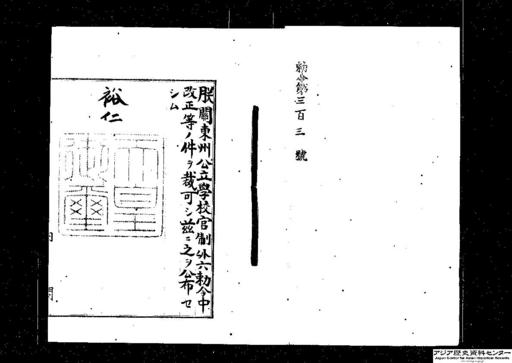 勅令第三百三號
朕關東州公立學校官制外六勅令中
改正等ノ件ヲ裁可シ茲ニ之ヲ公布セ
シム
裕仁
天皇
御璽
アジア歴史資料センター
Japan Center for Asian Historical Records